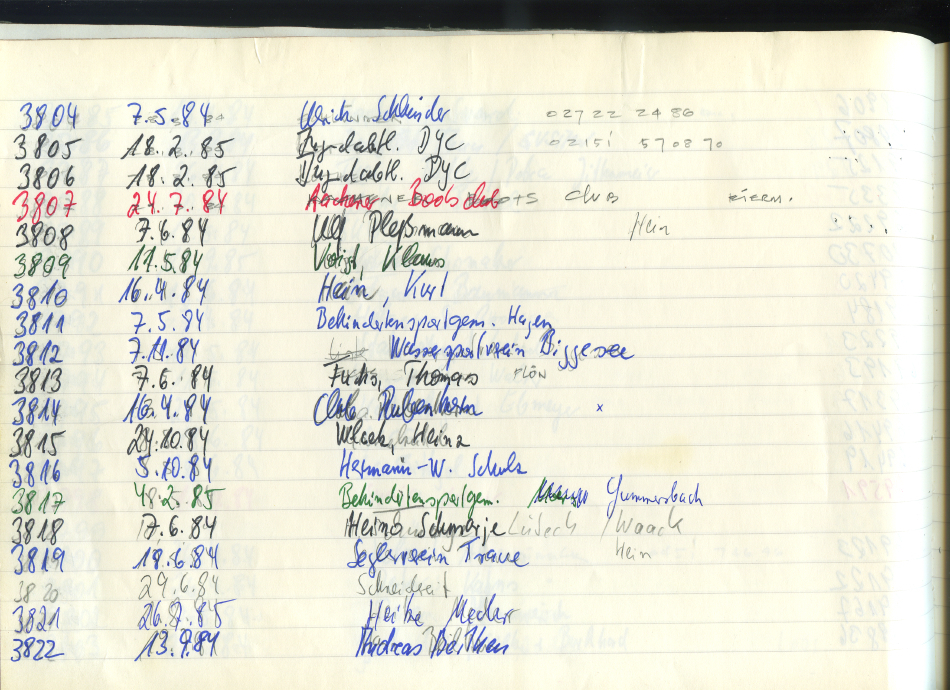 3804 7.5.84 Ulrich 02722 2486
3805 18.2.85 Jugendabtl. DYC 02151 570870
3806 18.2.85 Jugendabtl. DYC
3807 24.7.84 Aachener Boots club CLUB
3808 7.6.84 Ulf Pleßmann Hein
3809 11.5.84 Voigt, Klaus
3810 16.4.84 Hein, Kurt
3811 7.5.84 Behindertensportgem. Hagen
3812 7.11.84 Wassersportverein Biggesee
3813 7.6.84 Fuchs, Thomas PLÖN
3814 16.4.84 x
3815 29.10.84 Heinz
3816 5.10.84 Hermann-W. Schulz
3817 18.2.85 Behindertensportgem. Gummersbach
3818 17.6.84 Heino Lübeck / Waack
3819 18.6.84 Seglerverein Trave Hein
3820 29.6.84
3821 26.2.85 Heike
3822 13.9.84 Andreas